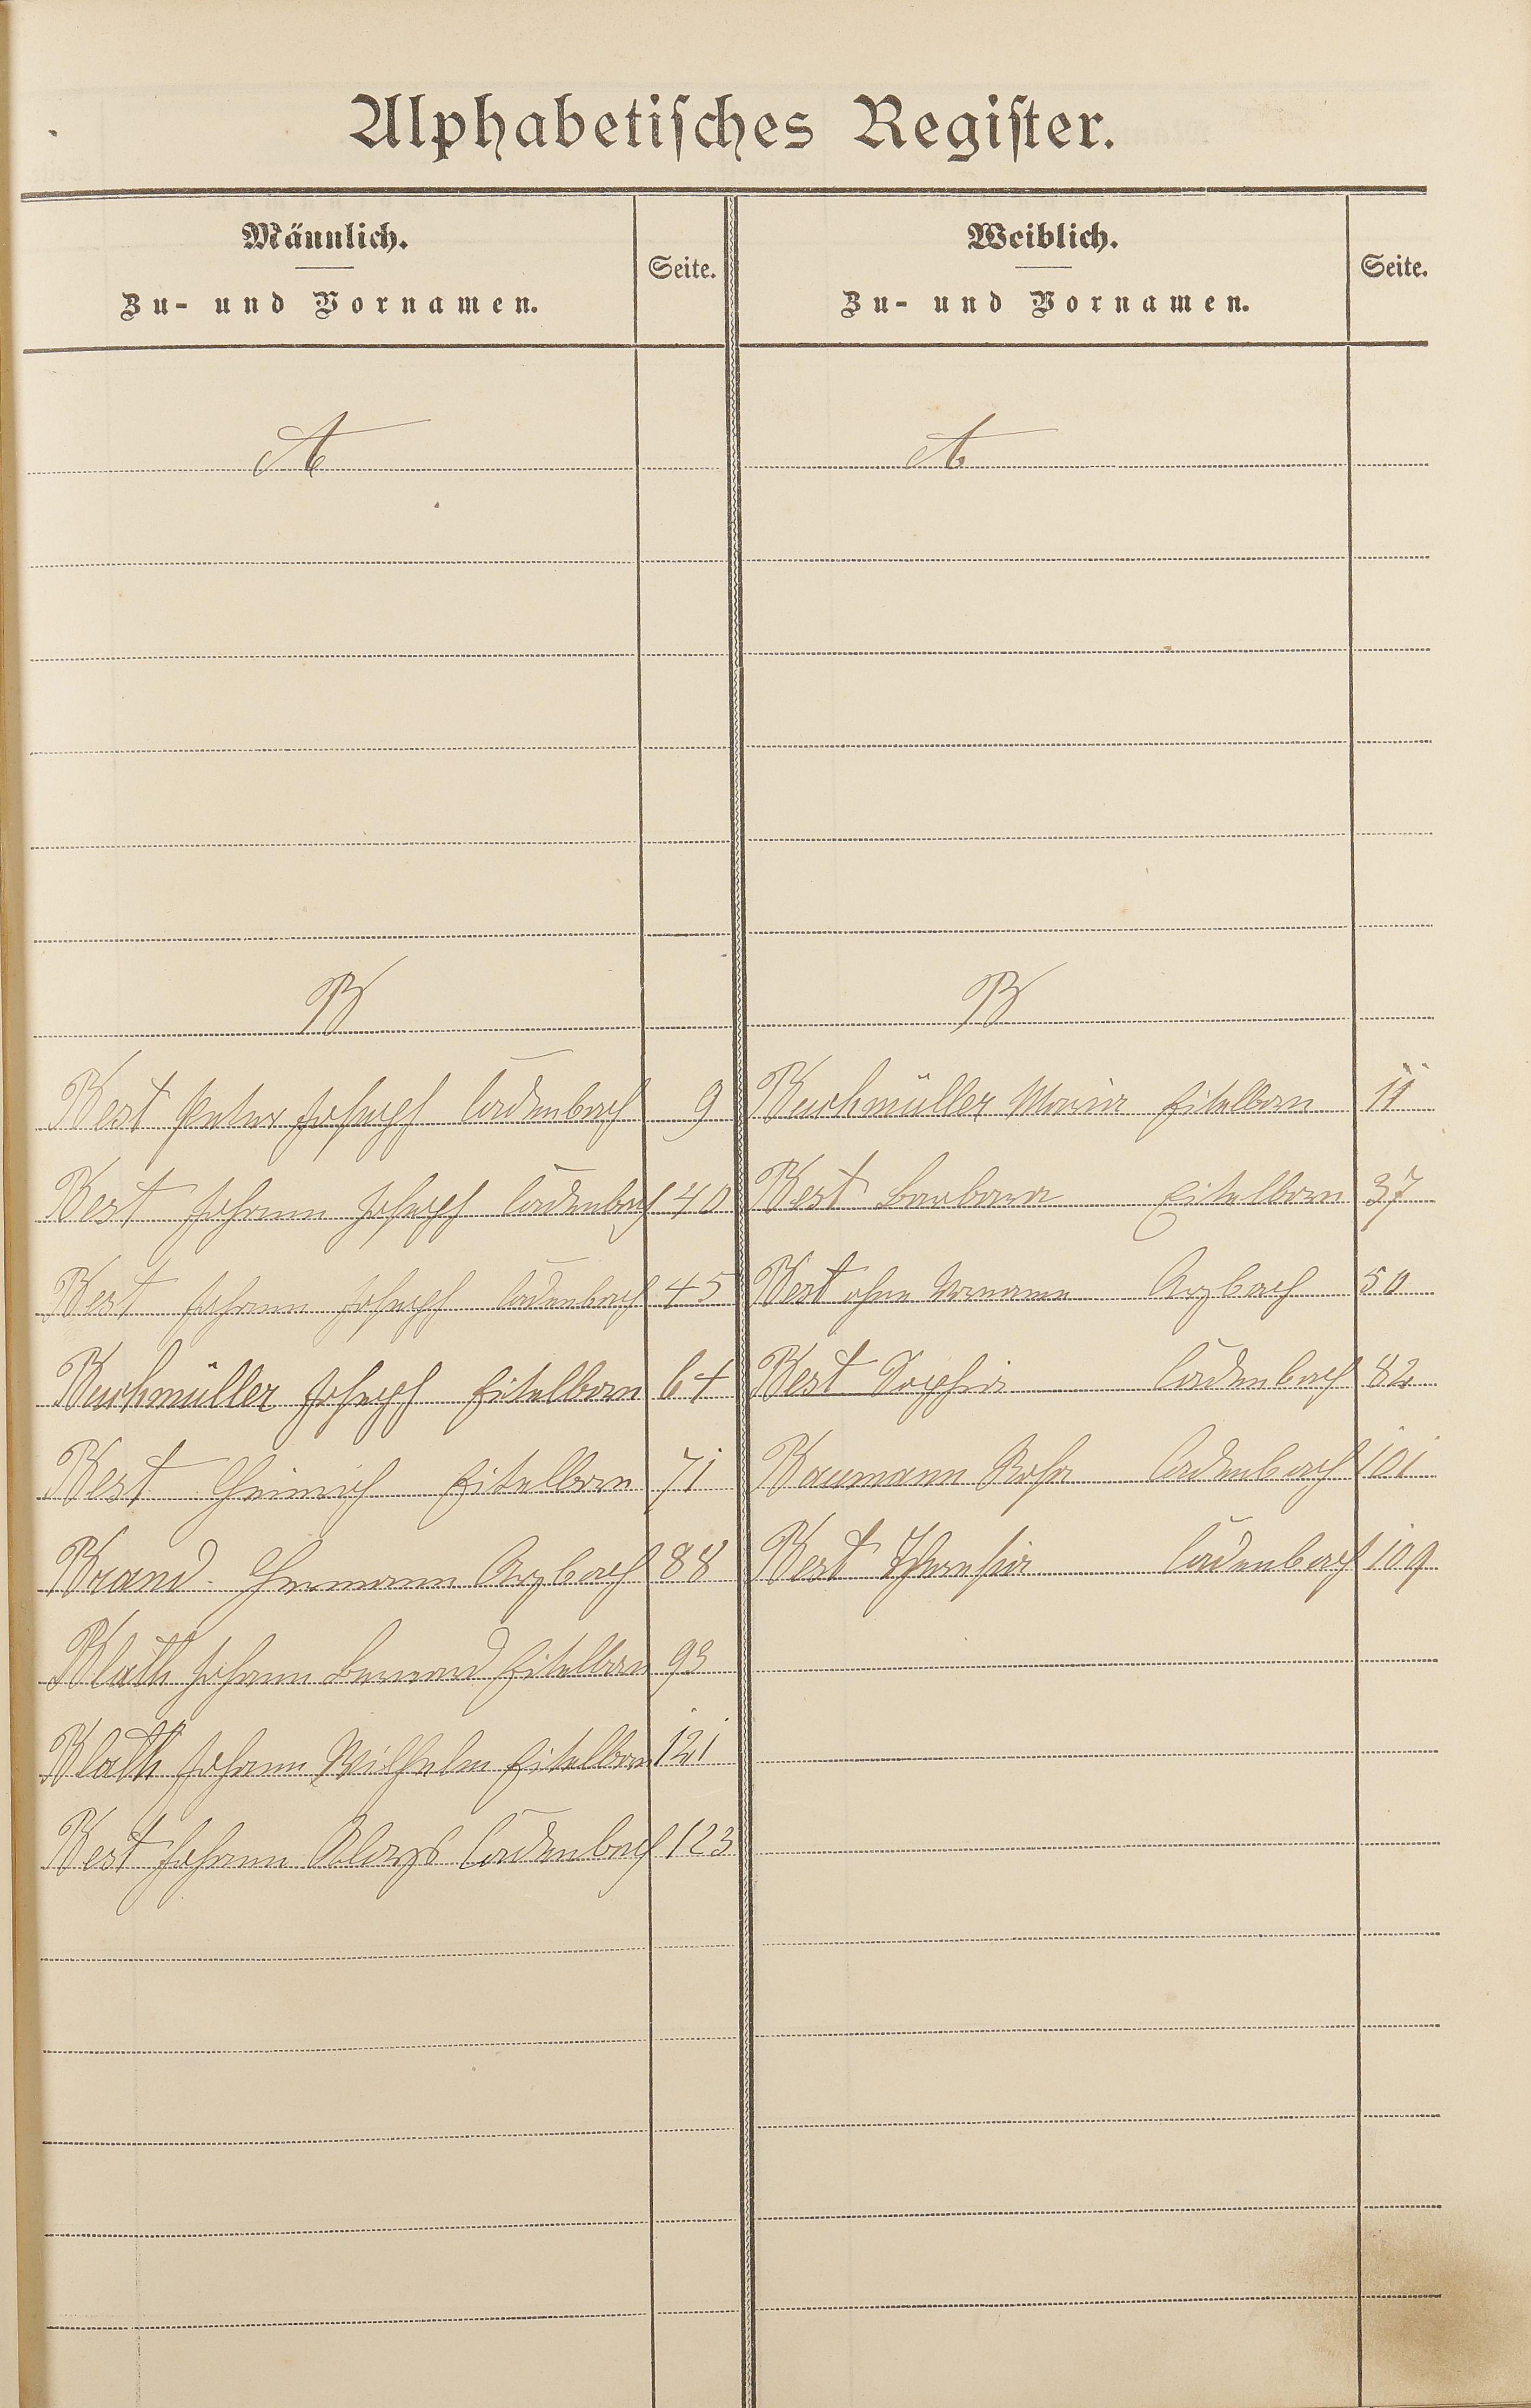 Alphabetisches Register.
Männlich.
Zu- und Vornamen.
Seite.
Weiblich.
Zu- und Vornamen.
Seite.
A
A
B
B
Best Peter Joseph Cadenbach 9
Buchmüller Maria Eitelborn 11
Best Johann Joseph Cadenbach 40
Best Barbara Eitelborn 37
Best Johann Joseph Cadenbach 45
Best ohne Vorname Arzbach 50
Buchmüller Joseph Eitelborn 64
Best Sophia Cadenbach 82
Best Heinrich Eitelborn 71
Baumann Rosa Cadenbach 101
Brand Hermann Arzbach 88
Best Theresia Cadenbach 109
Blath Johann Bernard Eitelborn 93
Blath Johann Wilhelm Eitelborn 121
Best Johann Aloys Cadenbach 123